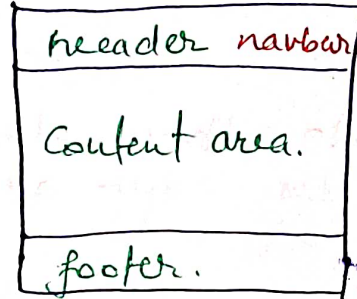 heeader navbar
Content area.
footer.